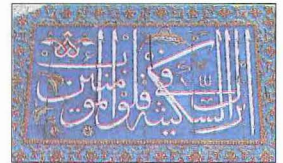 انزل السكينة في قلوب المؤمنين